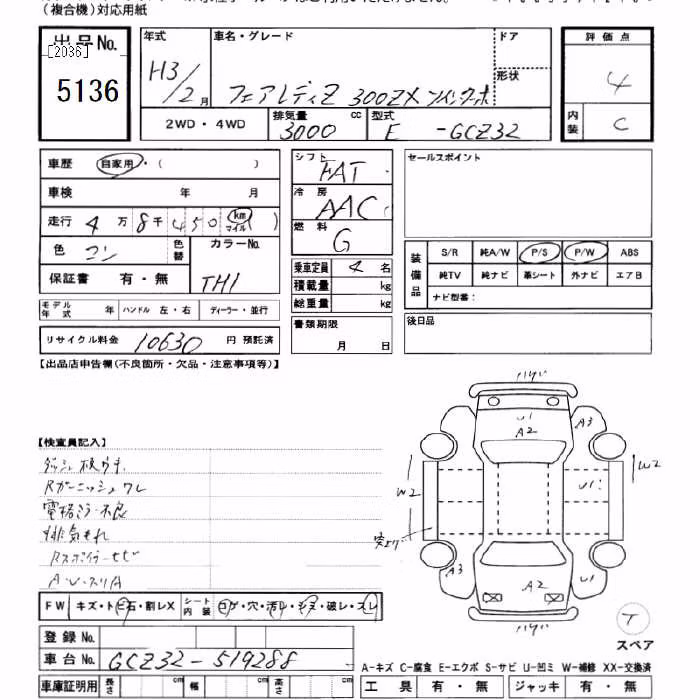 (複合機)対応用紙
出品No.
[2036]
5136
年式 H3/2月
車名・グレード フェアレディZ 300ZX ツインターボ
ドア
形状
2WD・4WD
排気量 3000 cc
型式 E-GCZ32
評価点 4
内装 C
車歴 自家用・( )
車検 年 月
走行 4万8千450 km マイル ( )
色 コン 色替
カラーNo. TH1
保証書 有・無
モデル年式 年 ハンドル 左・右 ディーラー・並行
リサイクル料金 10630 円 預託済
シフト FAT
冷房 AAC
燃料 G
乗車定員 4 名
積載量 kg
総重量 kg
書類期限
月 日
セールスポイント
装備品 S/R 純A/W P/S P/W ABS
純TV 純ナビ 革シート 外ナビ エアB
ナビ型番:
後日品
【出品店申告欄(不良箇所・欠品・注意事項等)】
【検査員記入】
Rガーニッシュワレ
電格ミラー不良
排気もれ
Rスポイラーセビ
A・U・スリA
FW キズ・トビ石・割レX シート内装 コゲ・穴・汚レ・シミ・破レ・スレ
登録No.
車台No. GCZ32-519288
車庫証明用 長さ cm 幅 cm 高さ cm
U1
A2
A3
W2
U1
W2
A3
A2
U1
T
スペア
A-キズ C-腐食 E-エクボ S-サビ U-凹ミ W-補修 XX-交換済
工具 有・無 ジャッキ 有・無